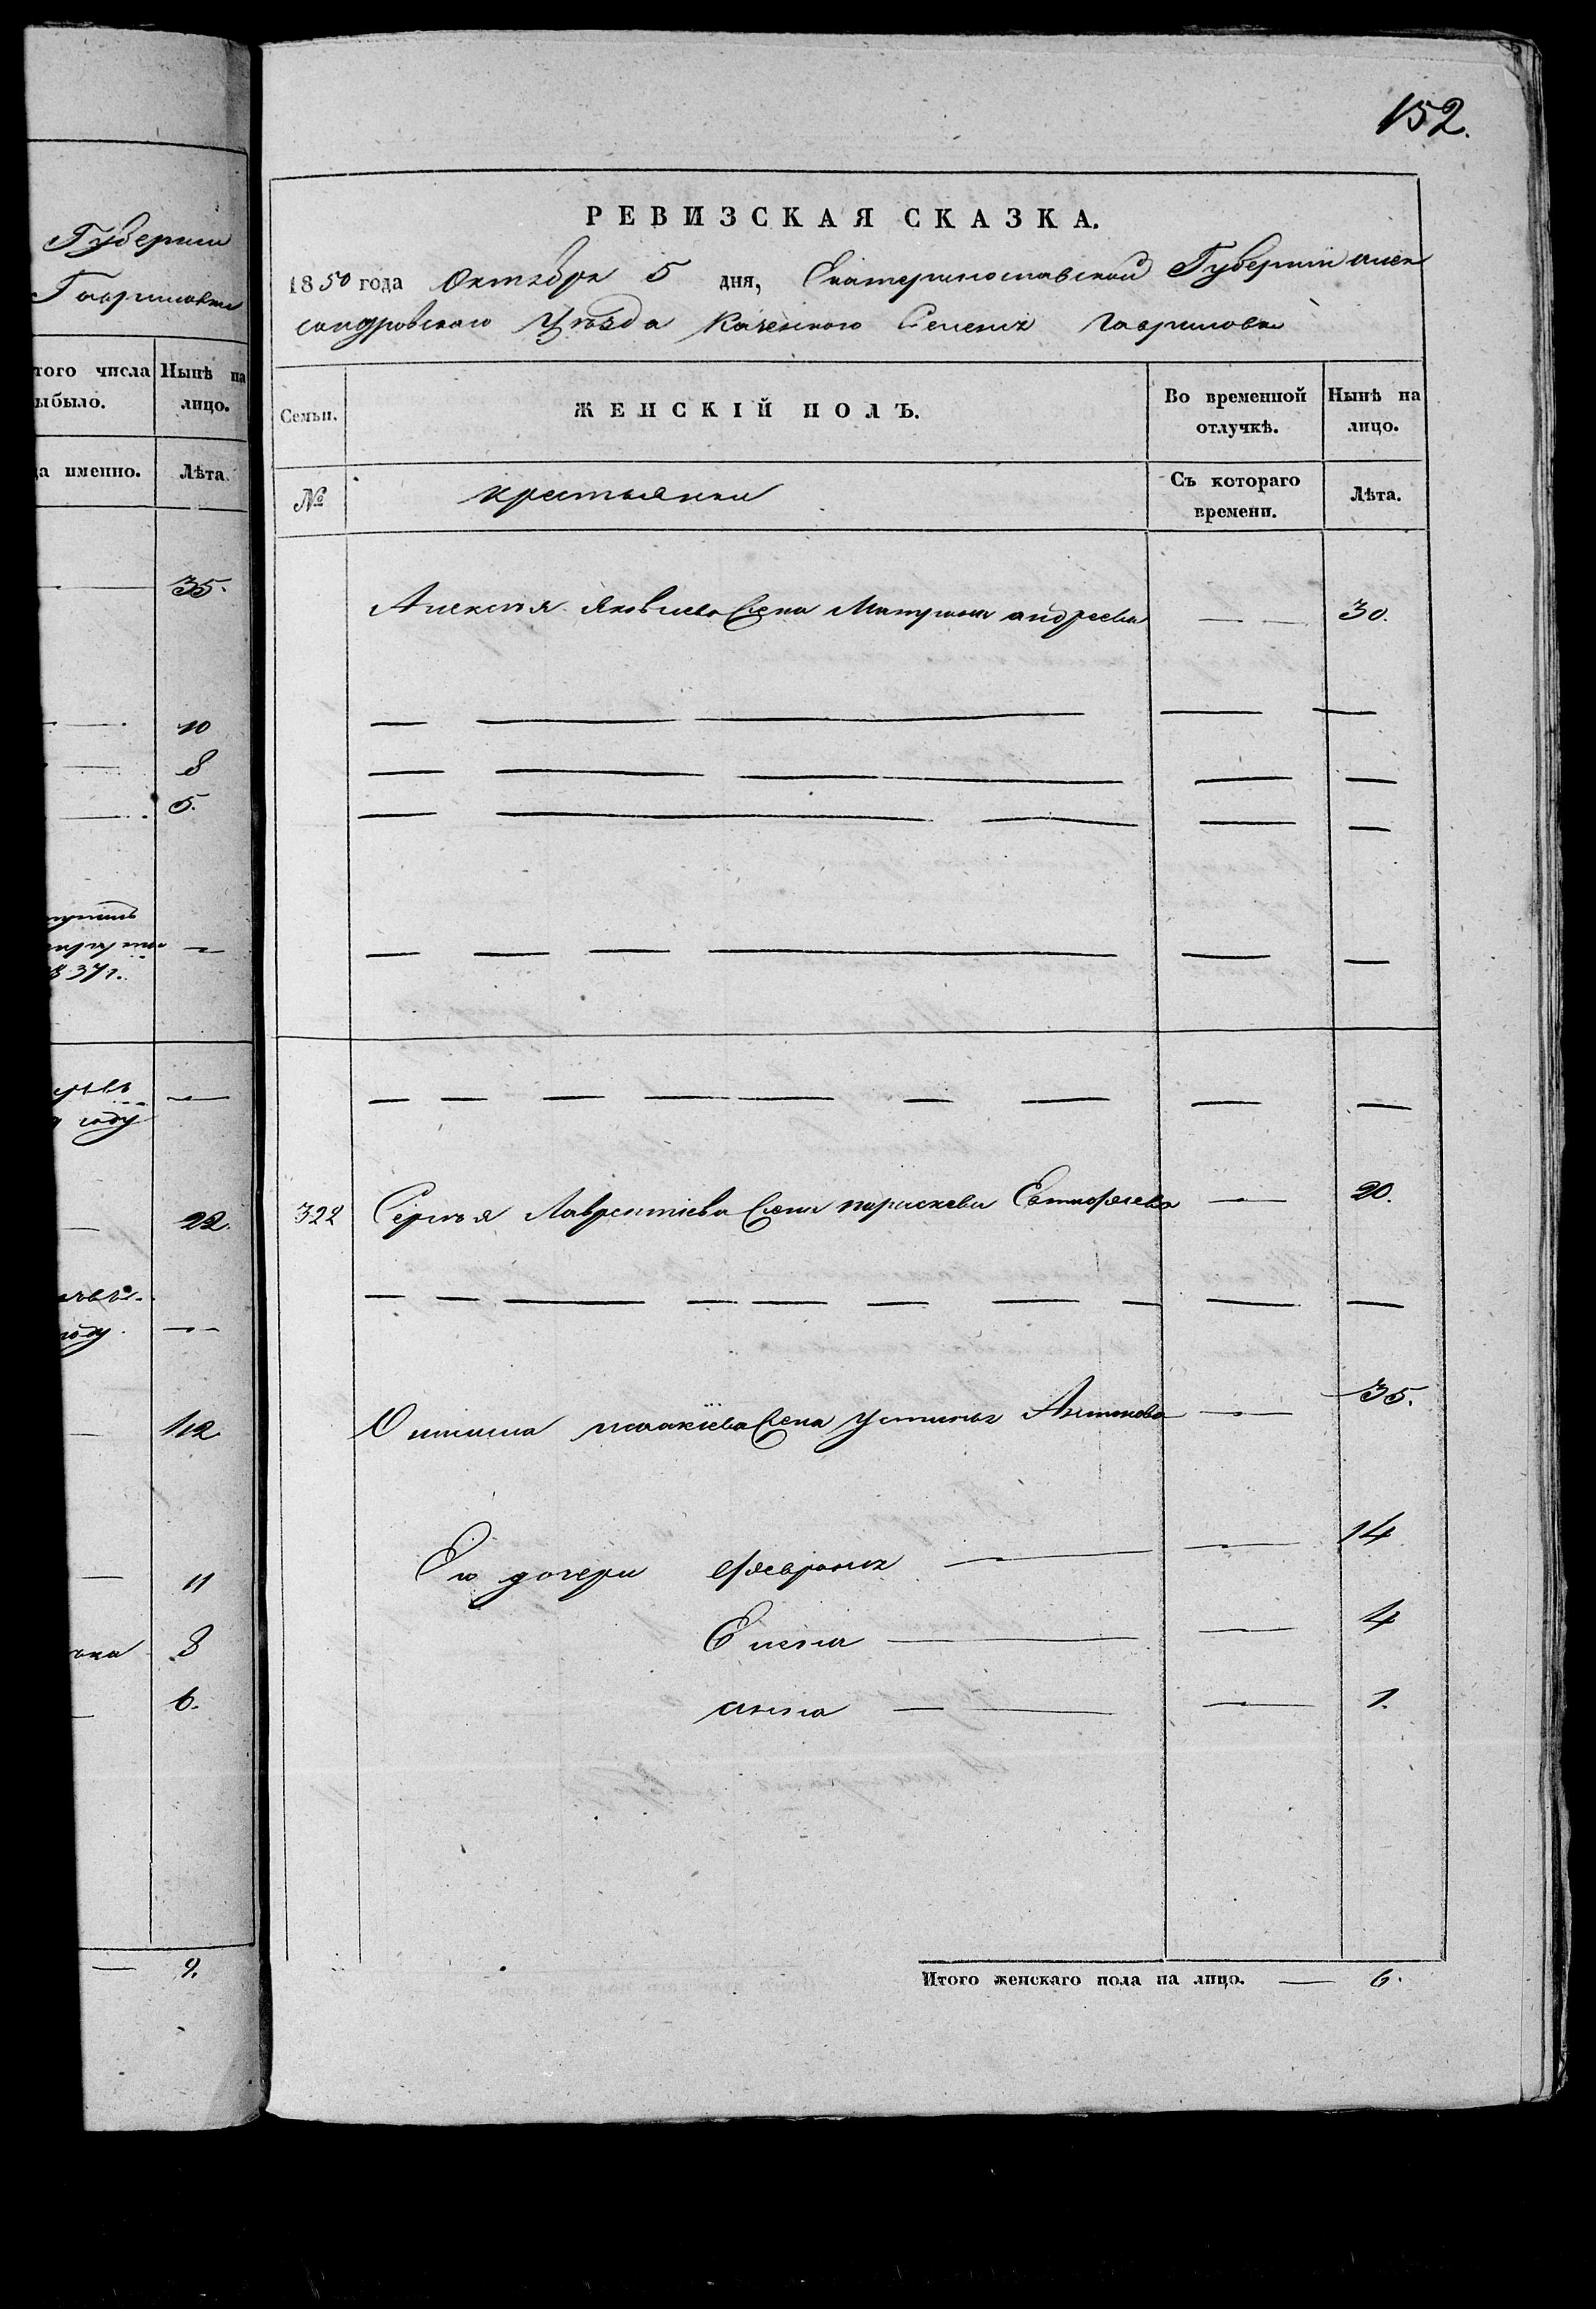 Губернии
Гавриловки
того числа Нынѣ на
ыбыло. лицо.
да именно. Лѣта.
35.
10
8
5.
837г.
году
22.
году
12
11
8
6.
9.
152.
РЕВИЗСКАЯ СКАЗКА.
1850 года Октября 5 дня, Екатеринославской Губернии Алек
сандровскаго Уѣзда Казенного Селения Гавриловки
Семьи. ЖЕНСКІЙ ПОЛЪ. Во временной отлучкѣ. Нынѣ на лицо.
№ крестьянки Съ котораго времени. Лѣта.
Алексѣя Яковлева жена Матрона андреева — 30.
322 Сергѣя Лаврентіева жена параскева — 20.
жена Устинья Антонова — 35.
Его дочери Феврония — 14
Елена — 4
анна — 1.
Итого женскаго пола на лицо. — 6.